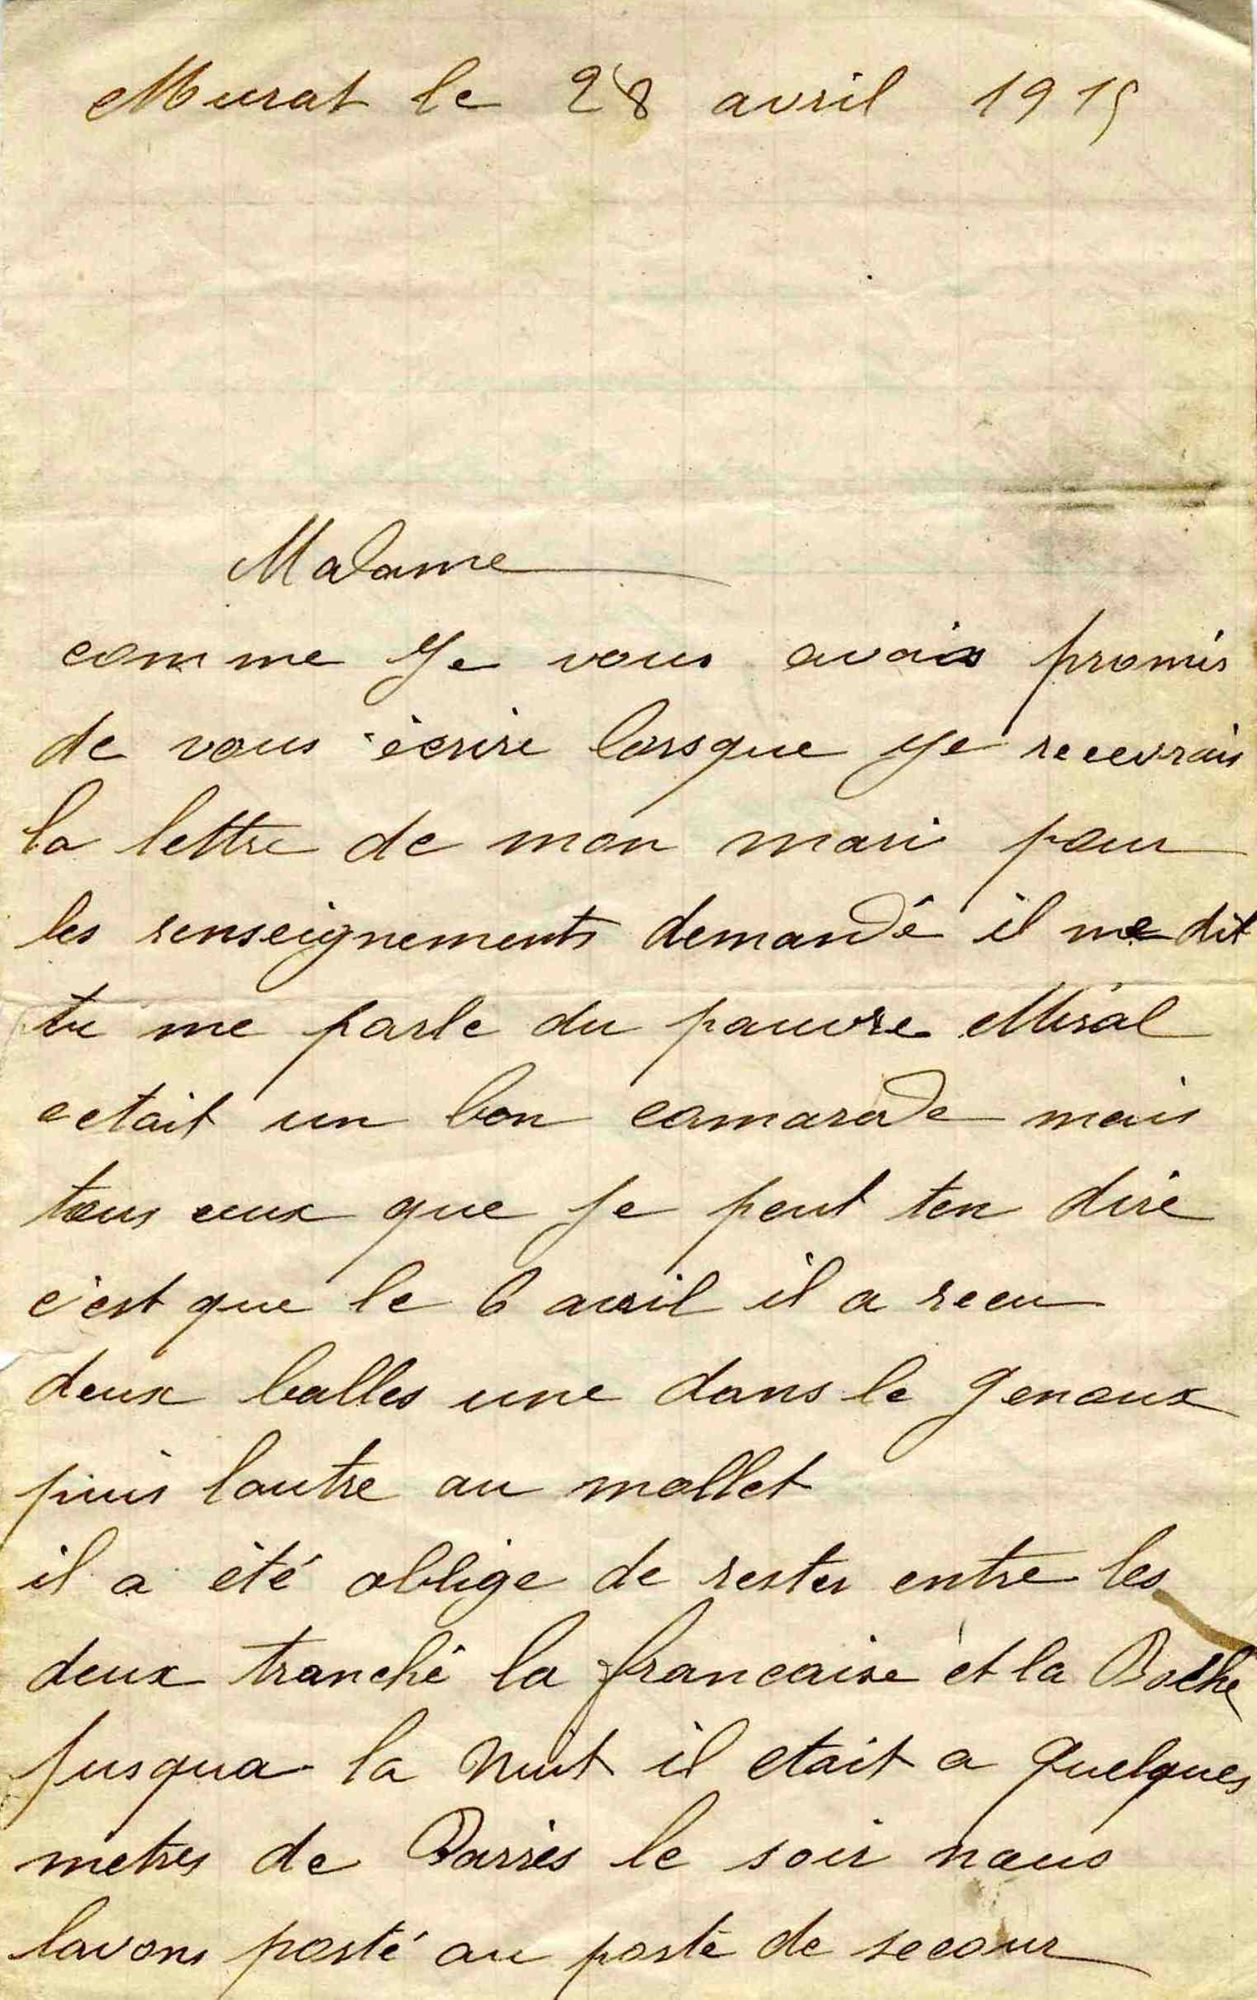 Murat le 28 avril 1915
Madame
comme Je vous avais promis
de vous écrire lorsque je recevrais
la lettre de mon mari pour
les renseignements demandé il me dit
tu me parle du pauvre Miral
cetait un bon camarade mais
tous ceux que je peut ten dire
c'est que le 6 avril il a recu
deux balles une dans le genoux
puis lautre au mollet
il a été oblige de rester entre les
deux tranché la francaise et la Boche
Jusqua la Nuit il etait a quelques
metres de Barrès le soir nous
lavons porté au poste de secour